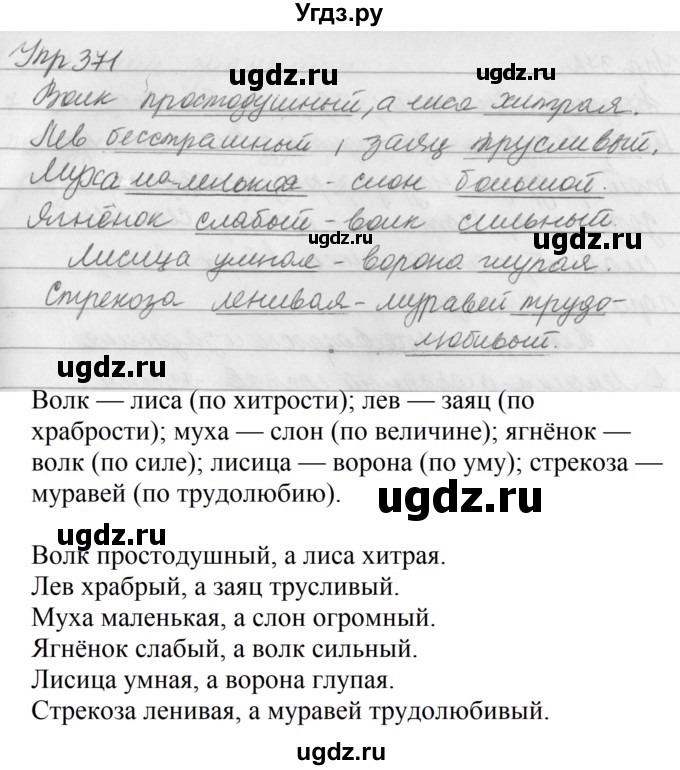 Угдз.ру
Упр 371
ugdz.ru ugdz.ru
Волк простодушный, а лиса хитрая.
Лев бесстрашный, заяц трусливый.
ugdz.ru ugdz.ru
Муха маленькая - слон большой.
Ягнёнок слабый - волк сильный.
ugdz.ru ugdz.ru ugdz.ru
Лисица умная - ворона глупая.
Стрекоза ленивая - муравей трудо-
любивый.
ugdz.ru ugdz.ru
Волк — лиса (по хитрости); лев — заяц (по
храбрости); муха — слон (по величине); ягнёнок —
волк (по силе); лисица — ворона (по уму); стрекоза —
муравей (по трудолюбию).
ugdz.ru
ugdz.ru
Волк простодушный, а лиса хитрая.
Лев храбрый, а заяц трусливый.
Муха маленькая, а слон огромный.
Ягнёнок слабый, а волк сильный.
Лисица умная, а ворона глупая.
Стрекоза ленивая, а муравей трудолюбивый.
ugdz.ru